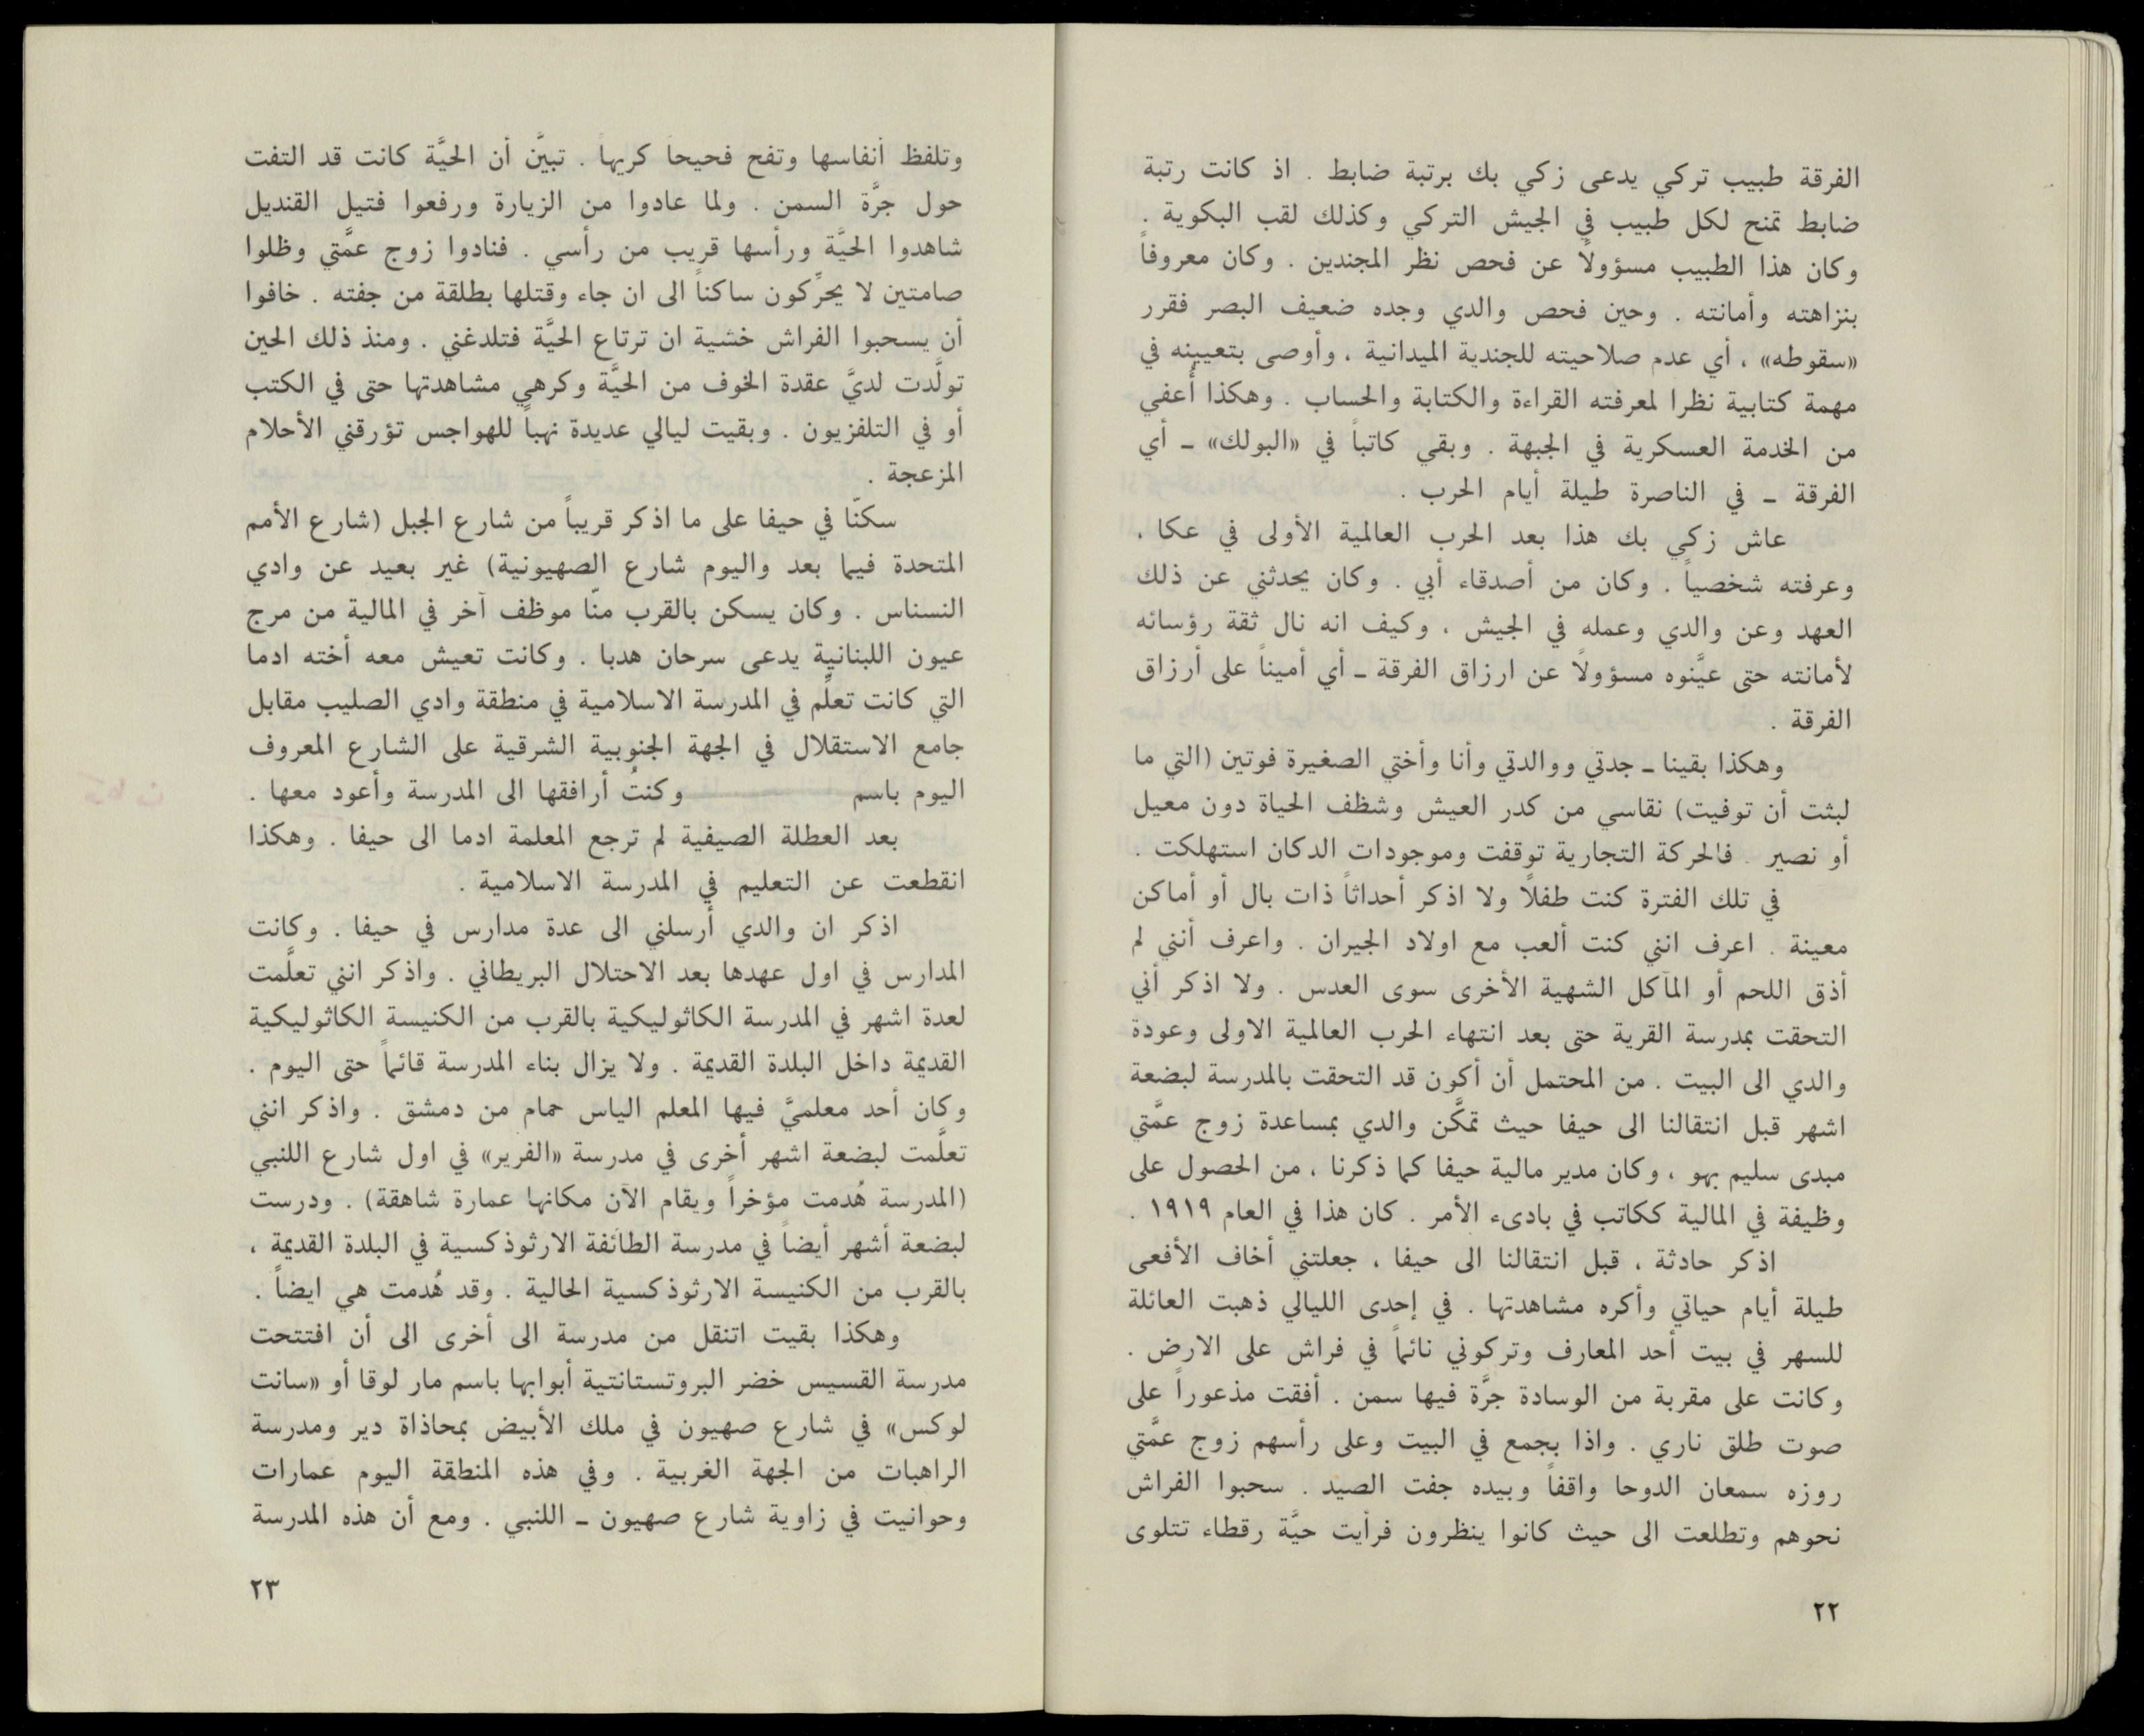 الفرقة طبيب تركي يدعى زكي بك برتبة ضابط . اذ كانت رتبة
ضابط تمنح لكل طبيب في الجيش التركي وكذلك لقب البكوية .
وكان هذا الطبيب مسؤولاً عن فحص نظر المجندين . وكان معروفاً
بنزاهته وأمانته . وحين فحص والدي وجده ضعيف البصر فقرر
«سقوطه» ، أي عدم صلاحيته للجندية الميدانية ، وأوصى بتعيينه في
مهمة كتابية نظرا لمعرفته القراءة والكتابة والحساب . وهكذا أُعفي
من الخدمة العسكرية في الجبهة . وبقي كاتباً في «البولك» ـ أي
الفرقة ـ في الناصرة طيلة أيام الحرب .
عاش زكي بك هذا بعد الحرب العالمية الأولى في عكا ،
وعرفته شخصياً . وكان من أصدقاء أبي . وكان يحدثني عن ذلك
العهد وعن والدي وعمله في الجيش ، وكيف انه نال ثقة رؤسائه
لأمانته حتى عيَّنوه مسؤولاً عن ارزاق الفرقة ـ أي أميناً على أرزاق
الفرقة .
وهكذا بقينا ـ جدتي ووالدتي وأنا وأختي الصغيرة فوتين (التي ما
لبثت أن توفيت) نقاسي من كدر العيش وشظف الحياة دون معيل
أو نصير . فالحركة التجارية توقفت وموجودات الدكان استهلكت .
في تلك الفترة كنت طفلاً ولا اذكر أحداثاً ذات بال أو أماكن
معينة . اعرف انني كنت ألعب مع اولاد الجيران . واعرف أنني لم
أذق اللحم أو المآكل الشهية الأخرى سوى العدس . ولا اذكر أني
التحقت بمدرسة القرية حتى بعد انتهاء الحرب العالمية الاولى وعودة
والدي الى البيت . من المحتمل أن أكون قد التحقت بالمدرسة لبضعة
اشهر قبل انتقالنا الى حيفا حيث تمكَّن والدي بمساعدة زوج عمَّتي
مبدى سليم بهو ، وكان مدير مالية حيفا كما ذكرنا ، من الحصول على
وظيفة في المالية ككاتب في بادىء الأمر . كان هذا في العام ١٩١٩ .
اذكر حادثة ، قبل انتقالنا الى حيفا ، جعلتني أخاف الأفعى
طيلة أيام حياتي وأكره مشاهدتها . في إحدى الليالي ذهبت العائلة
للسهر في بيت أحد المعارف وتركوني نائماً في فراش على الارض .
وكانت على مقربة من الوسادة جرَّة فيها سمن . أفقت مذعوراً على
صوت طلق ناري . واذا بجمع في البيت وعلى رأسهم زوج عمَّتي
روزه سمعان الدوحا واقفاً وبيده جفت الصيد . سحبوا الفراش
نحوهم وتطلعت الى حيث كانوا ينظرون فرأيت حيَّة رقطاء تتلوى
٢٢
وتلفظ أنفاسها وتفح فحيحاً كريهاً . تبيَّن أن الحيَّة كانت قد التفت
حول جرَّة السمن . ولما عادوا من الزيارة ورفعوا فتيل القنديل
شاهدوا الحيَّة ورأسها قريب من رأسي . فنادوا زوج عمَّتي وظلوا
صامتين لا يحرِّكون ساكناً الى ان جاء وقتلها بطلقة من جفته . خافوا
أن يسحبوا الفراش خشية ان ترتاع الحيَّة فتلدغني . ومنذ ذلك الحين
تولَّدت لديَّ عقدة الخوف من الحيَّة وكرهي مشاهدتها حتى في الكتب
أو في التلفزيون . وبقيت ليالي عديدة نهباً للهواجس تؤرقني الأحلام
المزعجة .
سكنّا في حيفا على ما اذكر قريباً من شارع الجبل (شارع الأمم
المتحدة فيما بعد واليوم شارع الصهيونية) غير بعيد عن وادي
النسناس . وكان يسكن بالقرب منّا موظف آخر في المالية من مرج
عيون اللبنانية يدعى سرحان هدبا . وكانت تعيش معه أخته ادما
التي كانت تعلِّم في المدرسة الاسلامية في منطقة وادي الصليب مقابل
جامع الاستقلال في الجهة الجنوبية الشرقية على الشارع المعروف
اليوم باسم وكنتُ أرافقها الى المدرسة وأعود معها .
بعد العطلة الصيفية لم ترجع المعلمة ادما الى حيفا . وهكذا
انقطعت عن التعليم في المدرسة الاسلامية .
اذكر ان والدي أرسلني الى عدة مدارس في حيفا . وكانت
المدارس في اول عهدها بعد الاحتلال البريطاني . واذكر انني تعلَّمت
لعدة اشهر في المدرسة الكاثوليكية بالقرب من الكنيسة الكاثوليكية
القديمة داخل البلدة القديمة . ولا يزال بناء المدرسة قائماً حتى اليوم .
وكان أحد معلميَّ فيها المعلم الياس حمام من دمشق . واذكر انني
تعلَّمت لبضعة اشهر أخرى في مدرسة «الفرير» في اول شارع اللنبي
(المدرسة هُدمت مؤخراً ويقام الآن مكانها عمارة شاهقة) . ودرست
لبضعة أشهر أيضاً في مدرسة الطائفة الارثوذكسية في البلدة القديمة ،
بالقرب من الكنيسة الارثوذكسية الحالية . وقد هُدمت هي ايضاً .
وهكذا بقيت اتنقل من مدرسة الى أخرى الى أن افتتحت
مدرسة القسيس خضر البروتستانتية أبوابها باسم مار لوقا أو «سانت
لوكس» في شارع صهيون في ملك الأبيض بمحاذاة دير ومدرسة
الراهبات من الجهة الغربية . وفي هذه المنطقة اليوم عمارات
وحوانيت في زاوية شارع صهيون ـ اللنبي . ومع أن هذه المدرسة
٢٣